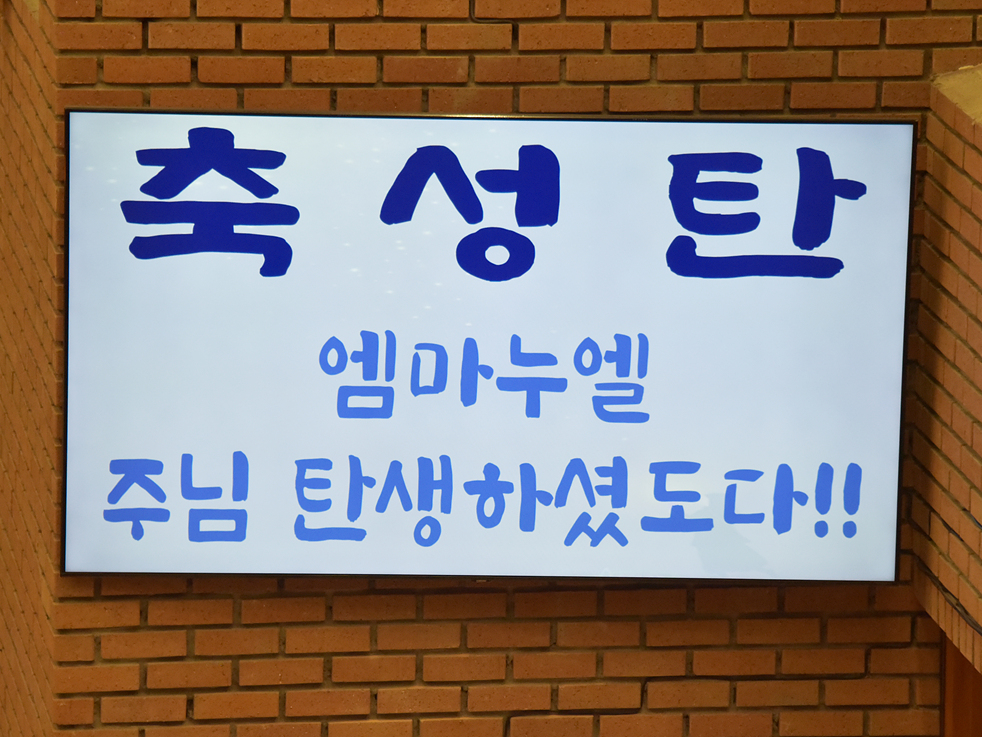 축 성 탄
엠마누엘
주님 탄생하셨도다!!